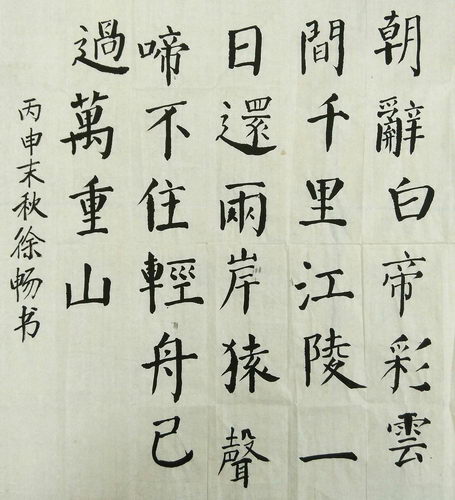 朝辭白帝彩雲
間千里江陵一
日還兩岸猿聲
啼不住輕舟已
過萬重山
丙申末秋徐畅书